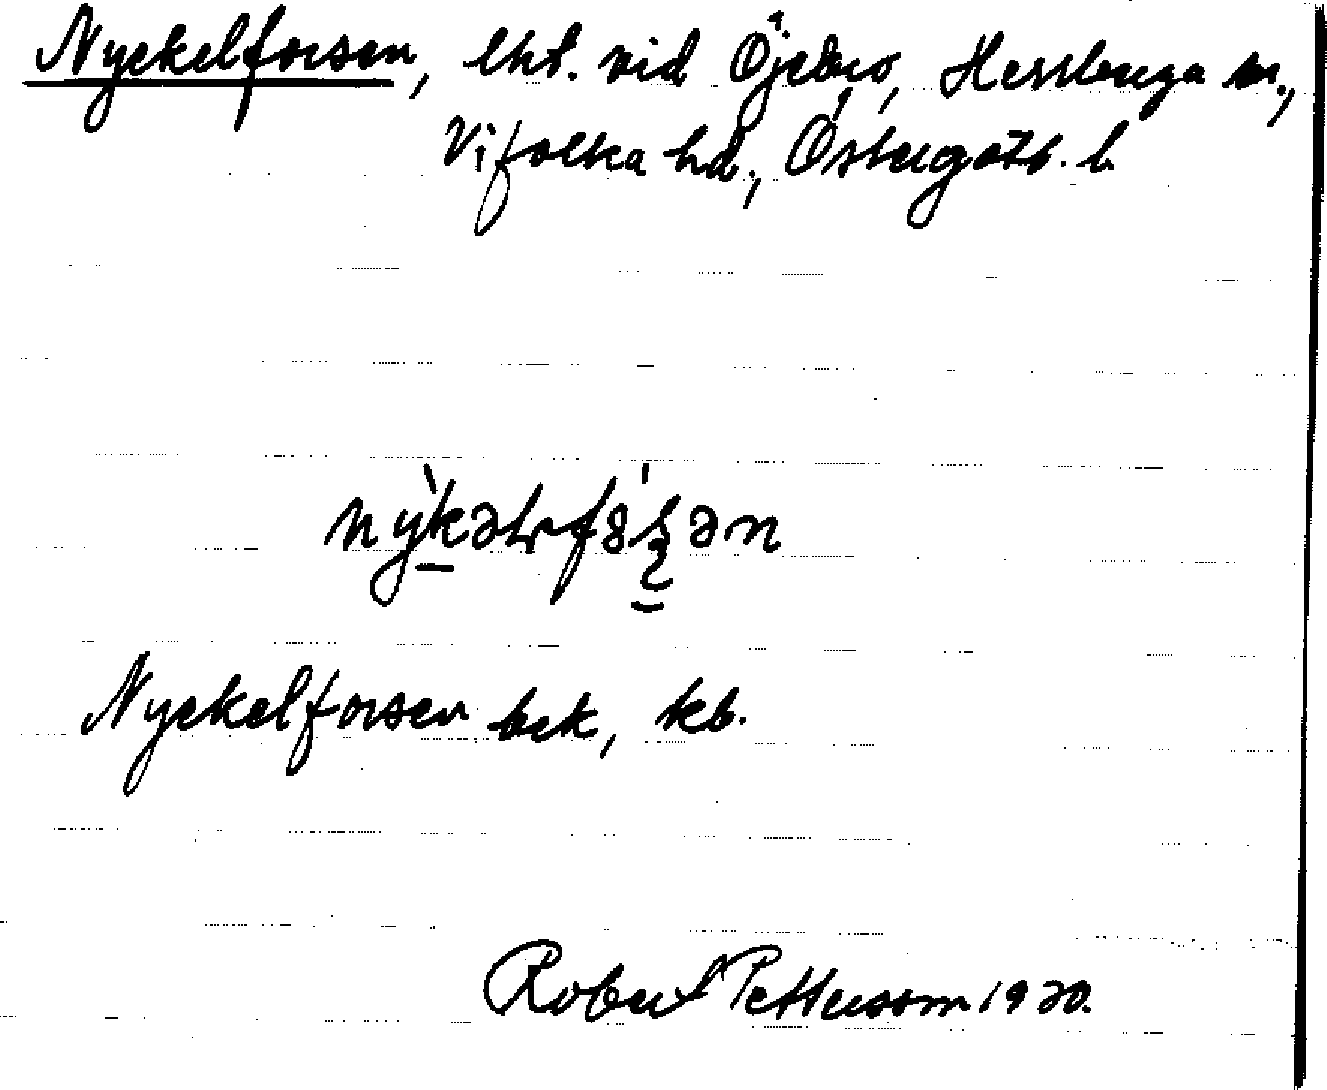 Nyckelforsen, lht. vid Öjebro, Herrberga sn.,
Vifolka hd., Östergötl. l.
nỳkəlfósən
Nyckelforsen bek, kb.
Robert Pettersson 1920.